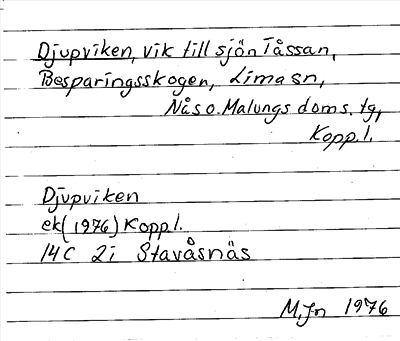 Djupviken, vik till sjön Tåssan,
Besparingsskogen, Lima sn,
Nås o. Malungs doms. tg,
Kopp. l.
Djupviken
ek (1976) Kopp l.
14C 2i Stavåsnäs
M. Jn 1976